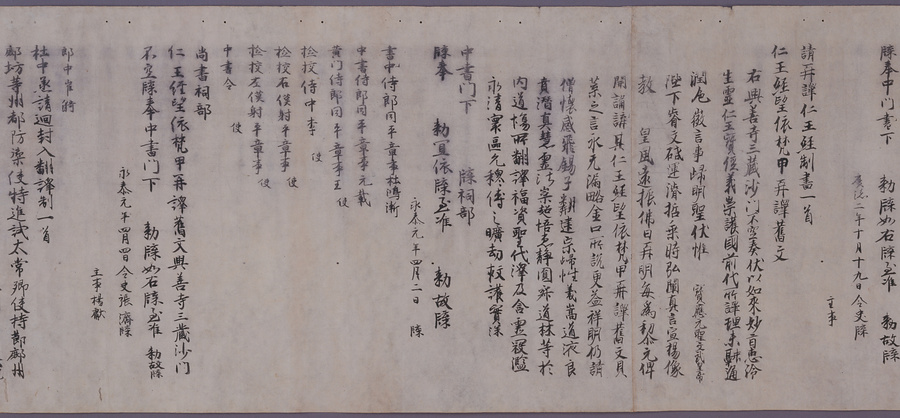 牒奉中門書下　勅牒如右牒至准　勅故牒
廣德二年十月十九日令史牒
主事
請再譯仁王経制書一首
仁王経望依梵甲再譯舊文
右興善寺三藏沙門不空奏伏以如来妙旨惠洽
生靈仁王寶経義崇護國前代所譯理未融通
潤色微言事歸明聖伏惟　寶應元聖文武皇帝
陛下睿文啟運濬哲乘時弘闡真言宣揚像
教　皇風遠振佛日再明每為黎元俾
開講誦其仁王経望依梵甲再譯舊文貝
葉之言永无漏略金口所說更益詳明仍請
僧懷感飛錫子鄰建宗歸性義嵩道液良
賁潛真慧靈法崇超悟惠靜圓寂道林等於
內道場所翻譯福資聖代澤及含靈寇濫
永清寰區允穆傳之曠劫救護實深
中書門下　牒祠部
牒奉　勅宜依牒至准　勅故牒
永泰元年四月二日　牒
書中侍郎同平章事杜鴻漸
中書侍郎同平章事元載
黃門侍郎同平章事王　使
撿挍侍中李　使
撿挍右僕射平章事　使
撿挍左僕射平章事　使
中書令　使
尚書祠部
仁王経望依梵甲再譯舊文興善寺三藏沙門
不空牒奉中書門下　勅牒如右牒至准　勅故牒
永泰元年四月四日令史張濟牒
主事楊獻
郎中崔漪
杜中丞請迴封入翻譯制一首
鄜坊等州都防禦使特進試太常卿使持節鄜州